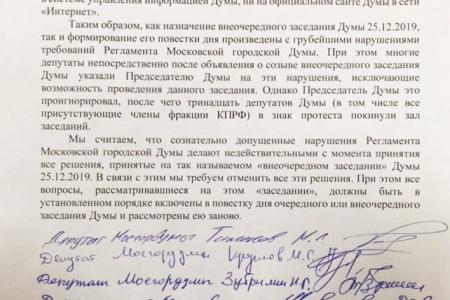 в системе управления информацией Думы, ни на официальном сайте Думы в сети
«Интернет».
Таким образом, как назначение внеочередного заседания Думы 25.12.2019,
так и формирование его повестки дня произведены с грубейшими нарушениями
требований Регламента Московской городской Думы. При этом многие
депутаты непосредственно после объявления о созыве внеочередного заседания
Думы указали Председателю Думы на эти нарушения, исключающие
возможность проведения данного заседания. Однако Председатель Думы это
проигнорировал, после чего тринадцать депутатов Думы (в том числе все
присутствующие члены фракции КПРФ) в знак протеста покинули зал
заседаний.
Мы считаем, что сознательно допущенные нарушения Регламента
Московской городской Думы делают недействительными с момента принятия
все решения, принятые на так называемом «внеочередном заседании» Думы
25.12.2019. В связи с этим мы требуем отменить все эти решения. При этом все
вопросы, рассматривавшиеся на этом «заседании», должны быть в
установленном порядке включены в повестку дня очередного или внеочередного
заседания Думы и рассмотрены ею заново.
Депутат Мосгордумы М.С.
Депутат Мосгордумы Круглов М.С.
Депутат Мосгордумы Зубрилин Н.Г.